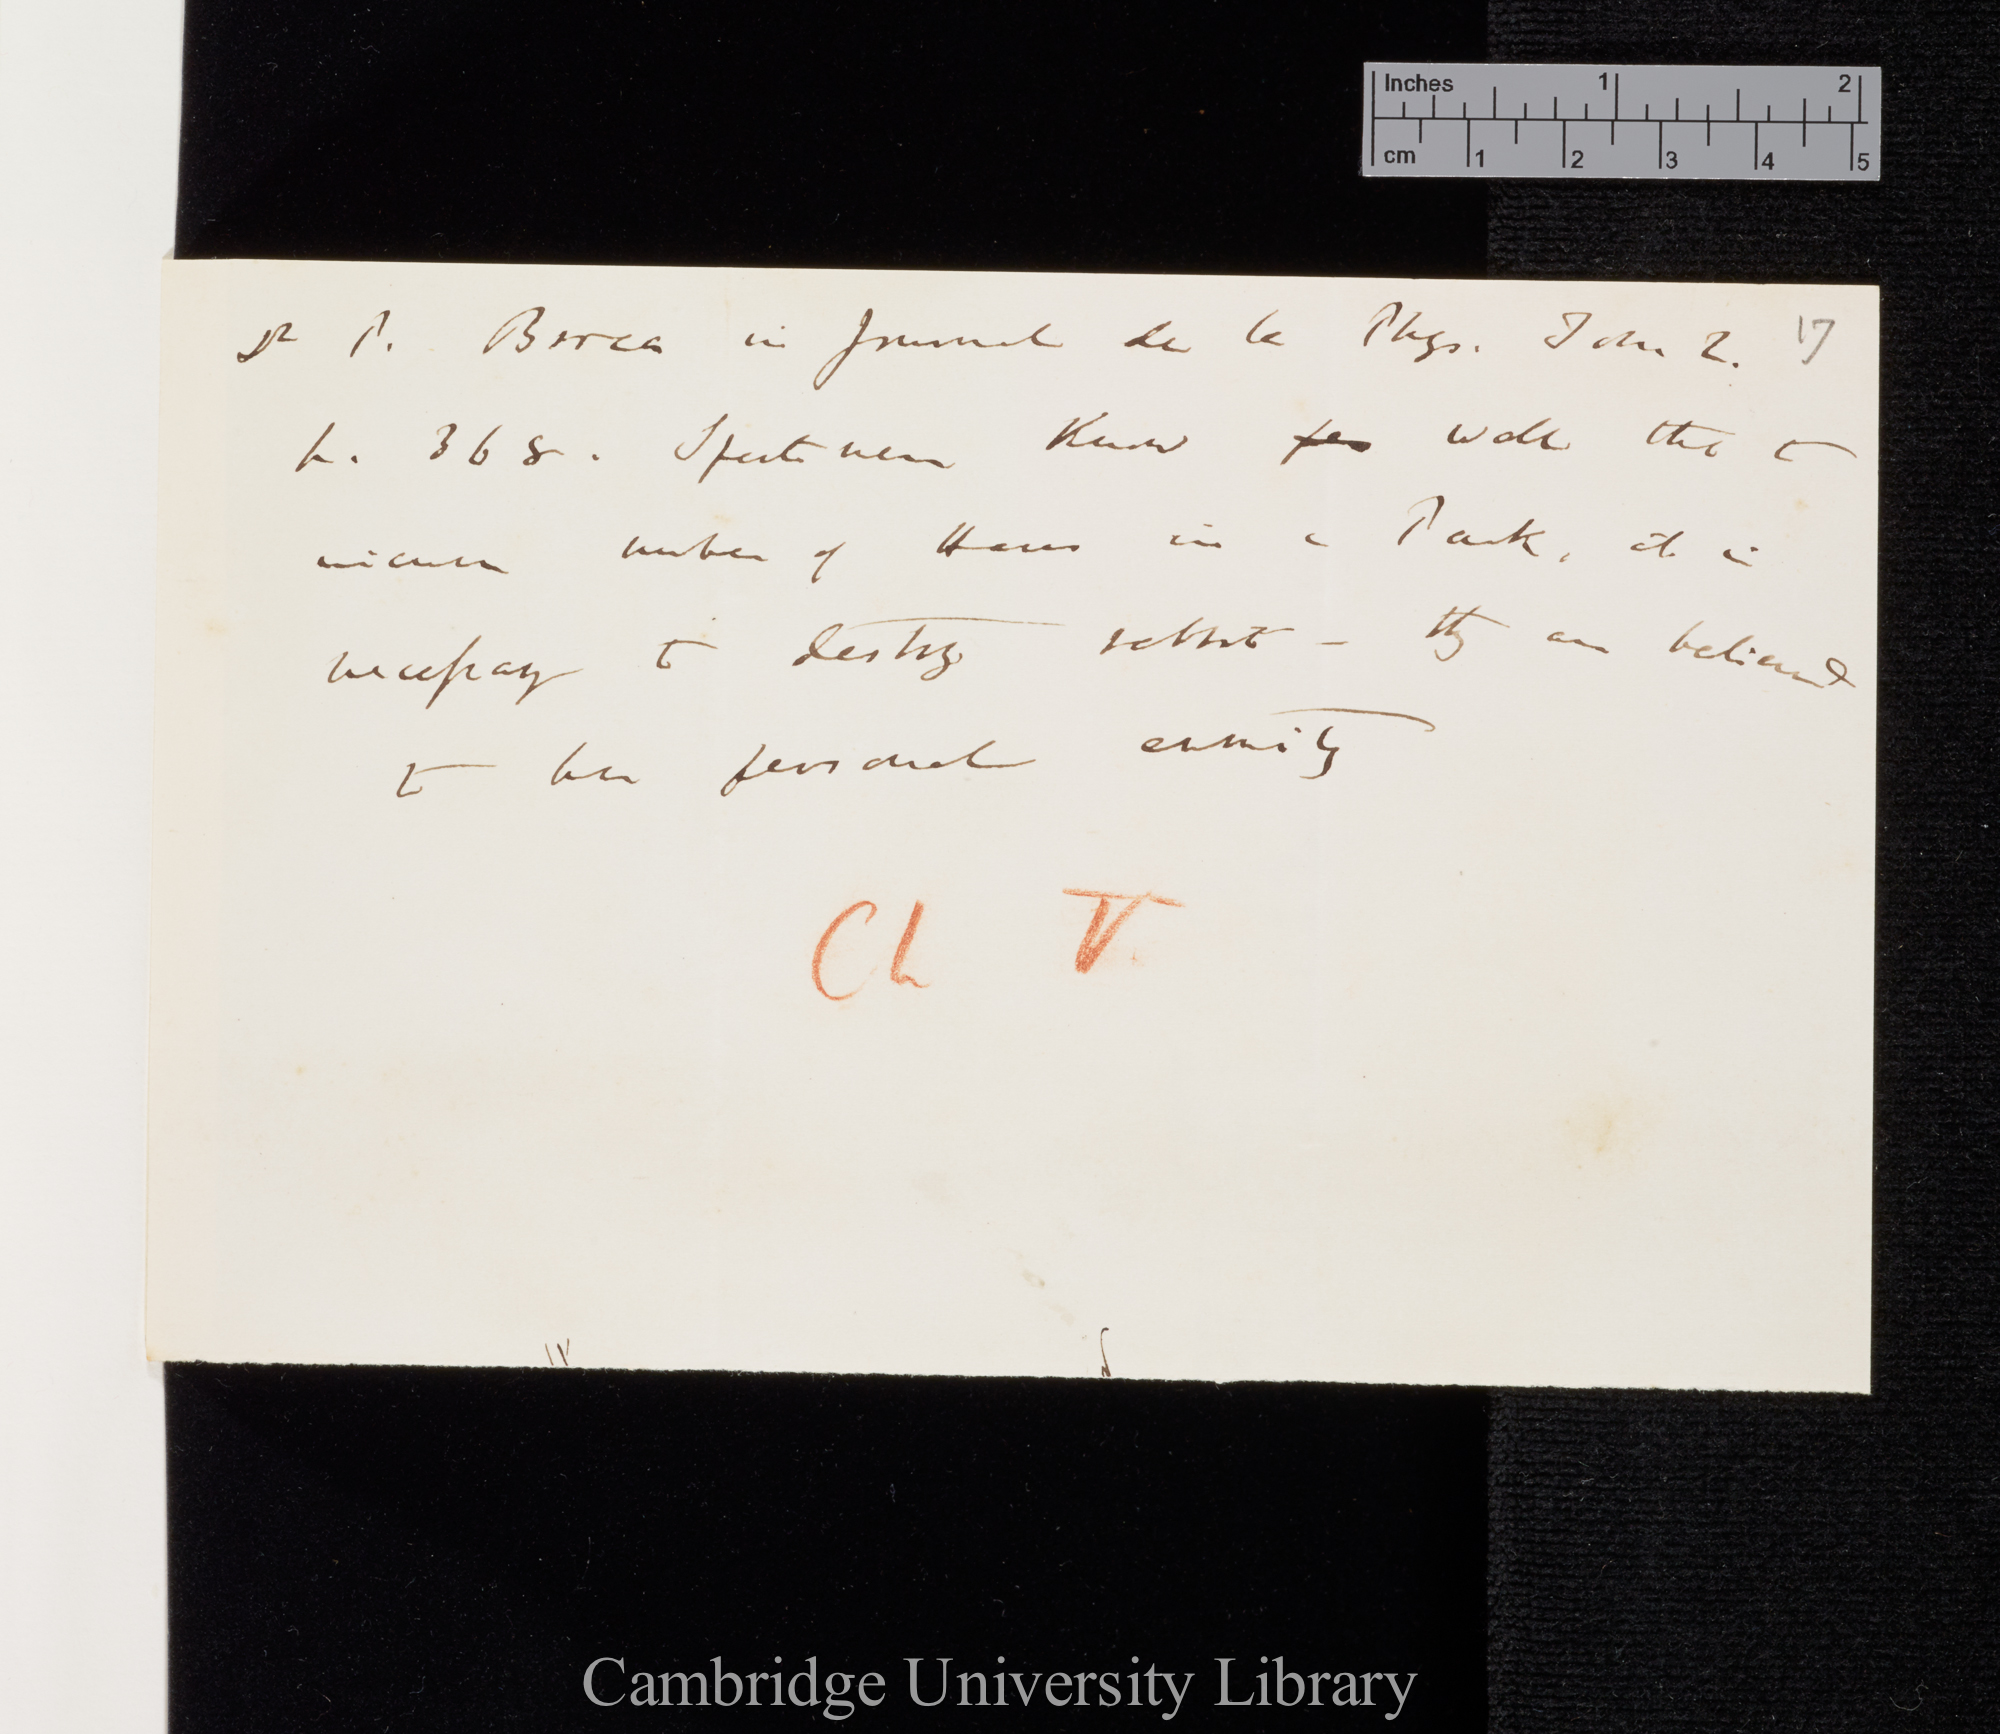 Inches 1 2
cm 1 2 3 4 5
Dr P. Broca in Journal de la Phys. Tom 2. 17
p. 368. Sportsmen know well that to
increase number of Hares in a Park, it is
necessary to destroy rabbits – they are believed
to have personal enmity
Ch V.
Cambridge University Library